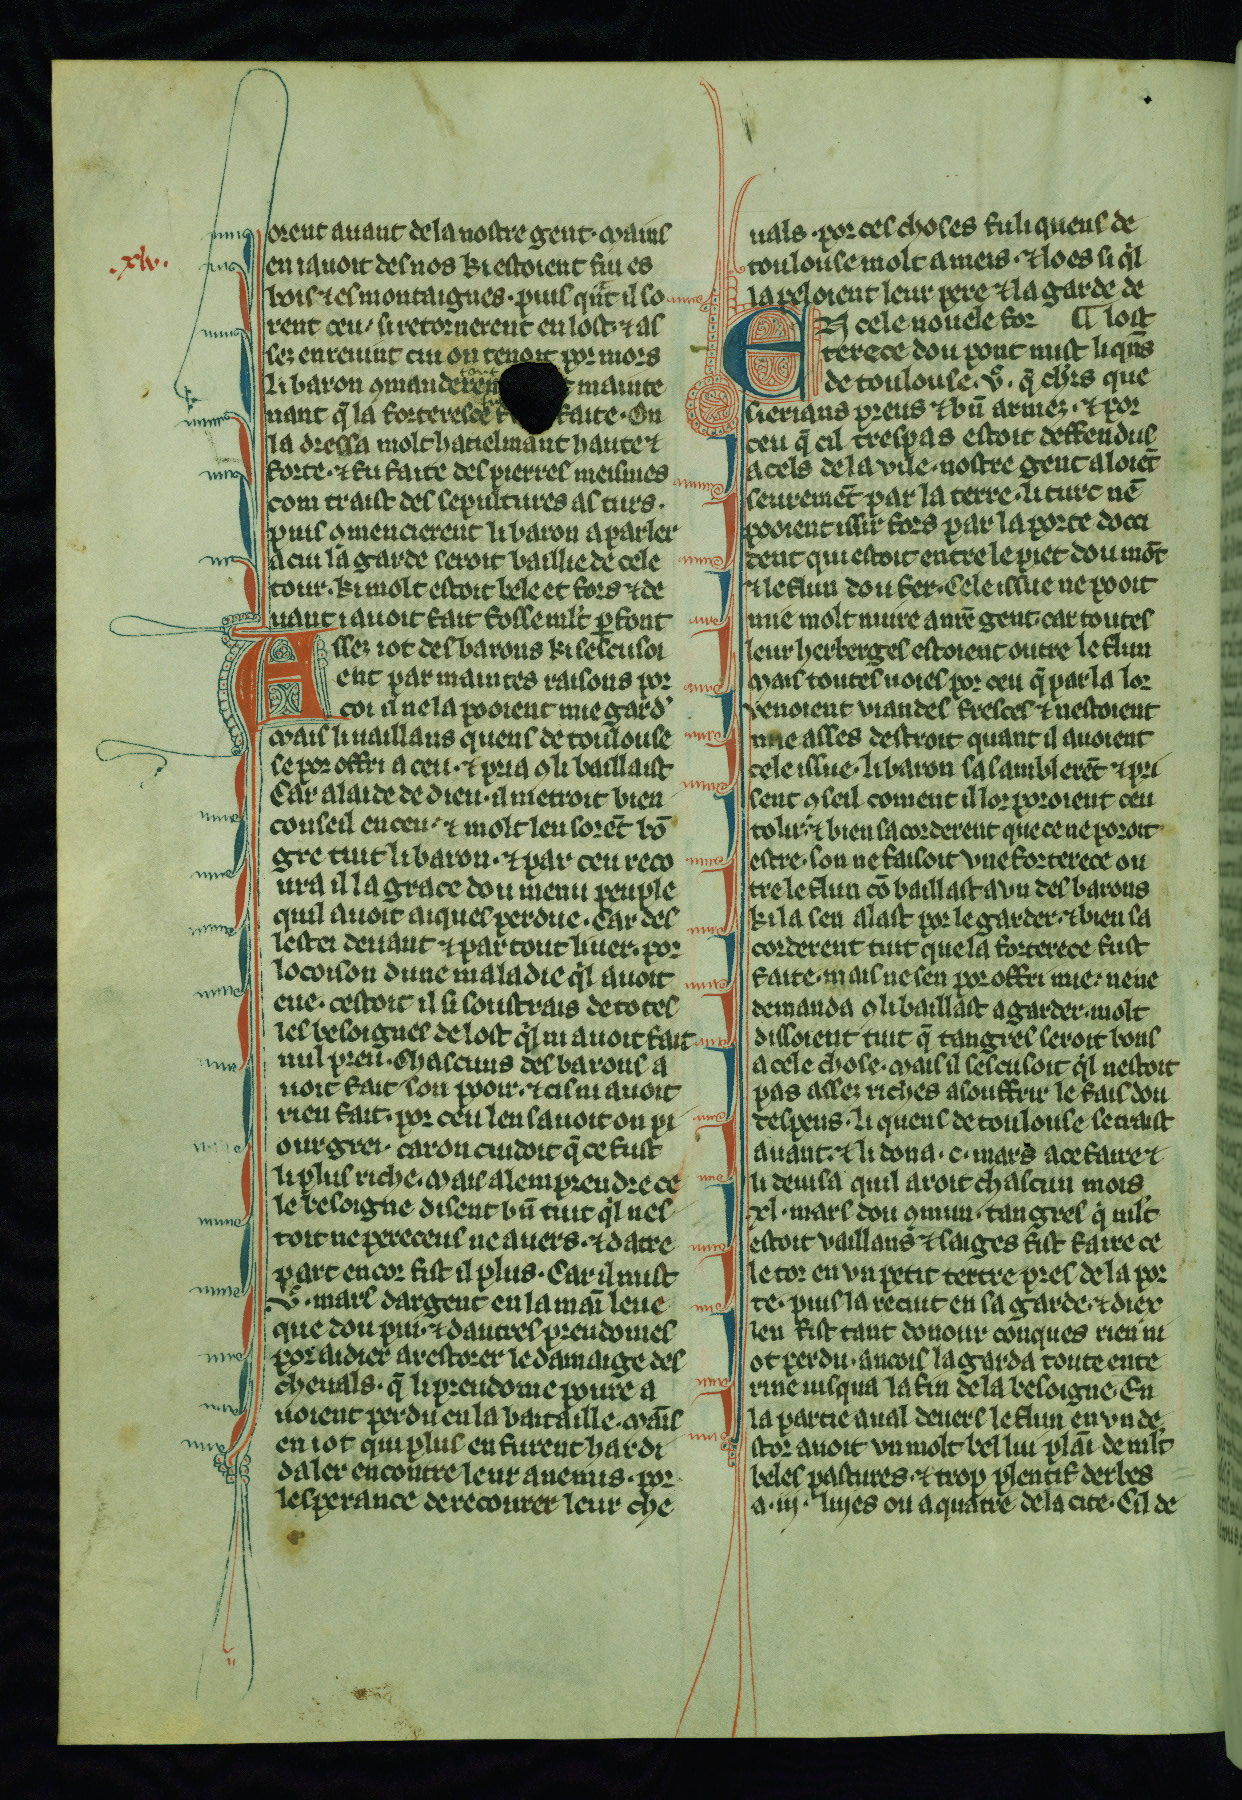 .xlv.
orent auant de la nostre gent. Mains
en i auoit des nos ki estoient fui es
bois ⁊ es montaignes. puis qūt il so
rent ceu. si retornerent en lost. ⁊ as
sez en reuint cui on tenoit por mors
li baron ꝯmanderent mainte
nant q̄ la forteresce faite. On
la dressa molt hatielmant haute ⁊
forte. ⁊ fu faite des pierres meismes
com traist des sepultures as turs.
puis ꝯmencierent li baron a parler
a cui la garde seroit baillie de cele
tour. ki molt estoit bele et fors ⁊ de
uant i auoit fait fosse mlt ꝑfont
Assez i ot des barons ki sescusoi
ent par maintes raisons por
coi il ne la pooient mie gard'
Mais li uaillans quens de toulouse
se por offri a ceu. ⁊ pria ꝯ li baillast
Car a laide de dieu. il metroit bien
conseil en ceu. ⁊ molt len sorēt bō
gre tuit li baron. ⁊ par ceu reco
ura il la grace dou menu peuple
quil auoit aiques perdue. Car des
lestei deuant ⁊ par tout liuer. por
locoison dune maladie q̓l auoit
eue. cestoit il si soustrais de totes
les besoignes de lost q̓l ni auoit fait
nul preu. Chascuns des barons a
uoit fait son pooir. ⁊ cil ni auoit
rien fait. por ceu len sauoit on pi
our grei. car on cuidoit q̄ ce fust
li plus riche. Mais a lemprendre ce
le besoigne disent bn̄ tuit q̓l nes
toit ne pereceus ne auers. ⁊ datre
part encor fist il plus. Car il mist
.vͨ. mars dargent en la maī leue
que dou pui. ⁊ dautres preudomes
por aidier a restorer le damaige des
cheuals. q̄ li preudome poure a
uoient perdu en la bataille. Mais
en i ot qui plus en furent hardi
daler encontre leur anemis. por
lesperance de recourer leur che
uals. por ces choses fu li quens de
toulouse molt ameis. ⁊ loes si q̓l
lapeloient leur pere ⁊ la garde de
En cele nouele for ¶ lost
terece dou pont mist li quēs
de toulouse. vͨ. q̄ chr̄s que
serians preus ⁊ bn̄ armez. ⁊ por
ceu q̄ cil trespas estoit deffendus
a cels de la vile. nostre gent aloiēt
seuremēt par la terre. li turc nē
pooient issir fors par la porte docci
dent qui estoit entre le piet dou mōt
⁊ le flun dou fer. Cele issue ne pooit
mie molt nuire a nr̄e gent. car toutes
leur herberges estoient outre le flun
Mais toutes uoies por ceu q̄ par la lor
venoient viandes fresces ⁊ nestoient
mie asses destroit quant il auoient
cele issue. li baron sasamblerēt ⁊ pri
sent ꝯseil coment il lor poroient ceu
tolir. ⁊ bien sacorderent que ce ne poroit
estre. son ne faisoit vne forterece ou
tre le flun cō baillast a vn des barons
ki la sen alast por le garder. ⁊ bien sa
corderent tuit que la forterece fust
faite. mais ne sen por offri mie. ne ne
demanda ꝯ li baillast a garder. molt
dissoient tuit q̄ tangres seroit bons
a cele chose. Mais il sescusoit q̓l nestoit
pas assez riches a souffrir le fais dou
tespens. li quens de toulouse se traist
auant. ⁊ li dona .c. mars a ce faire ⁊
li deuisa quil aroit chascun mois
xl. mars dou ꝯmun. tangres q̄ mlt
estoit vaillans ⁊ saiges fist faire ce
le tor en vn petit tertre pres de la por
te. puis la reciut en sa garde. ⁊ diex
len fist tant donour conques rien ni
ot perdu. ancois la garda toute ente
rine iusqua la fin de la besoigne. En
la partie aual deuers le flun en vn de
stor auoit vn molt bel liu plaī de mlt
beles pastures. ⁊ trop plentif derbes
a .iij. liues ou a quatre de la cite. Cil de